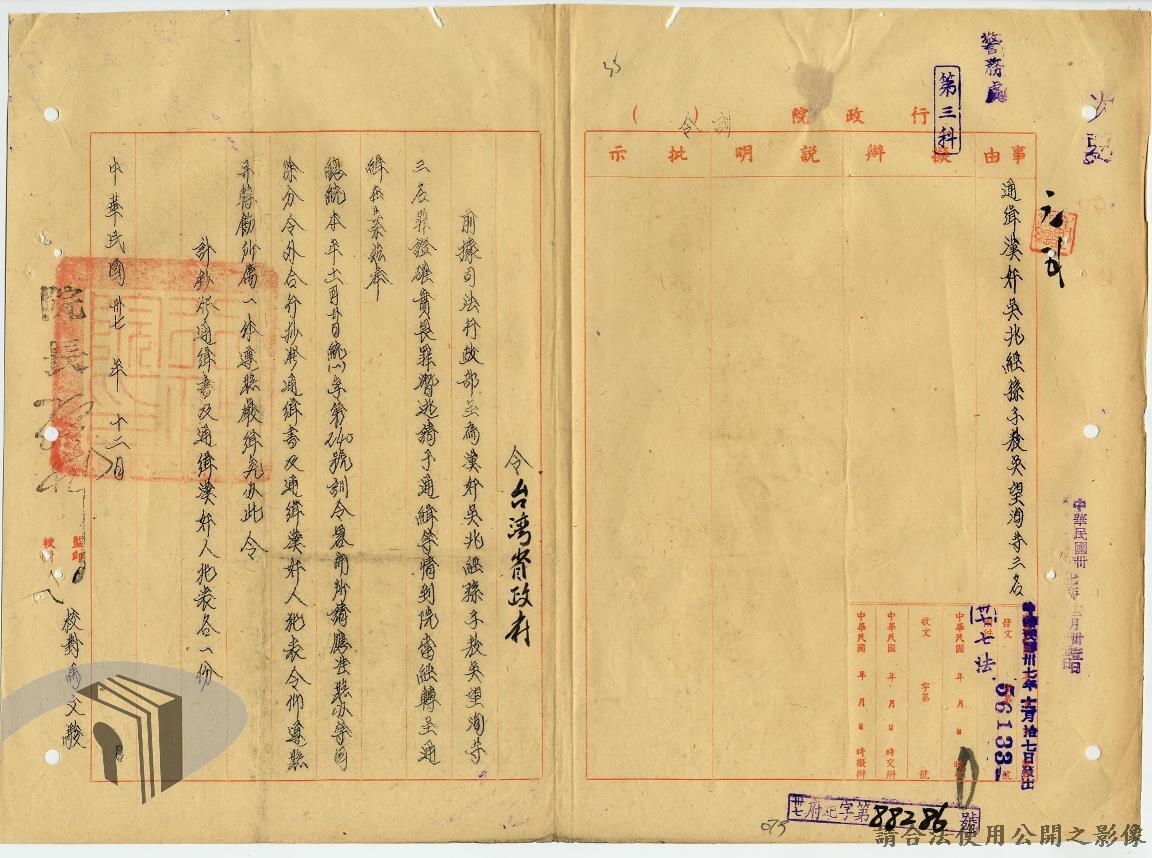 警務處
第三科
行政院（訓令）
事由
擬辦
說明
批示
通緝漢奸吳兆經孫子敎吳望洵等三名
中華民國卅七年十二月卅壹日
中華民國卅七年十二月拾七日發出
發文
(卅七)七法
56133
號
中華民國 年 月 日 時
收文 字第 號
中華民國 年 月 日 時交辦
中華民國 年 月 日 時擬辦
卅七府紀字第88286號
令台灣省政府
前據司法行政部呈為漢奸吳兆經孫子敎吳望洵等
三名罪證確實畏罪潛逃請予通緝等情到院當經轉呈通
緝在案茲奉
總統本年十一月廿日統(一)字第240號訓令畧開所請應准照办等因
除分令外合行抄發通緝書及通緝漢奸人犯表令仰遵照
并轉飭所屬一体遵照嚴緝究办此令
計抄發通緝書及通緝漢奸人犯表各一份
中華民國卅七年十二月 日
院長
監印
校對
請合法使用公開之影像